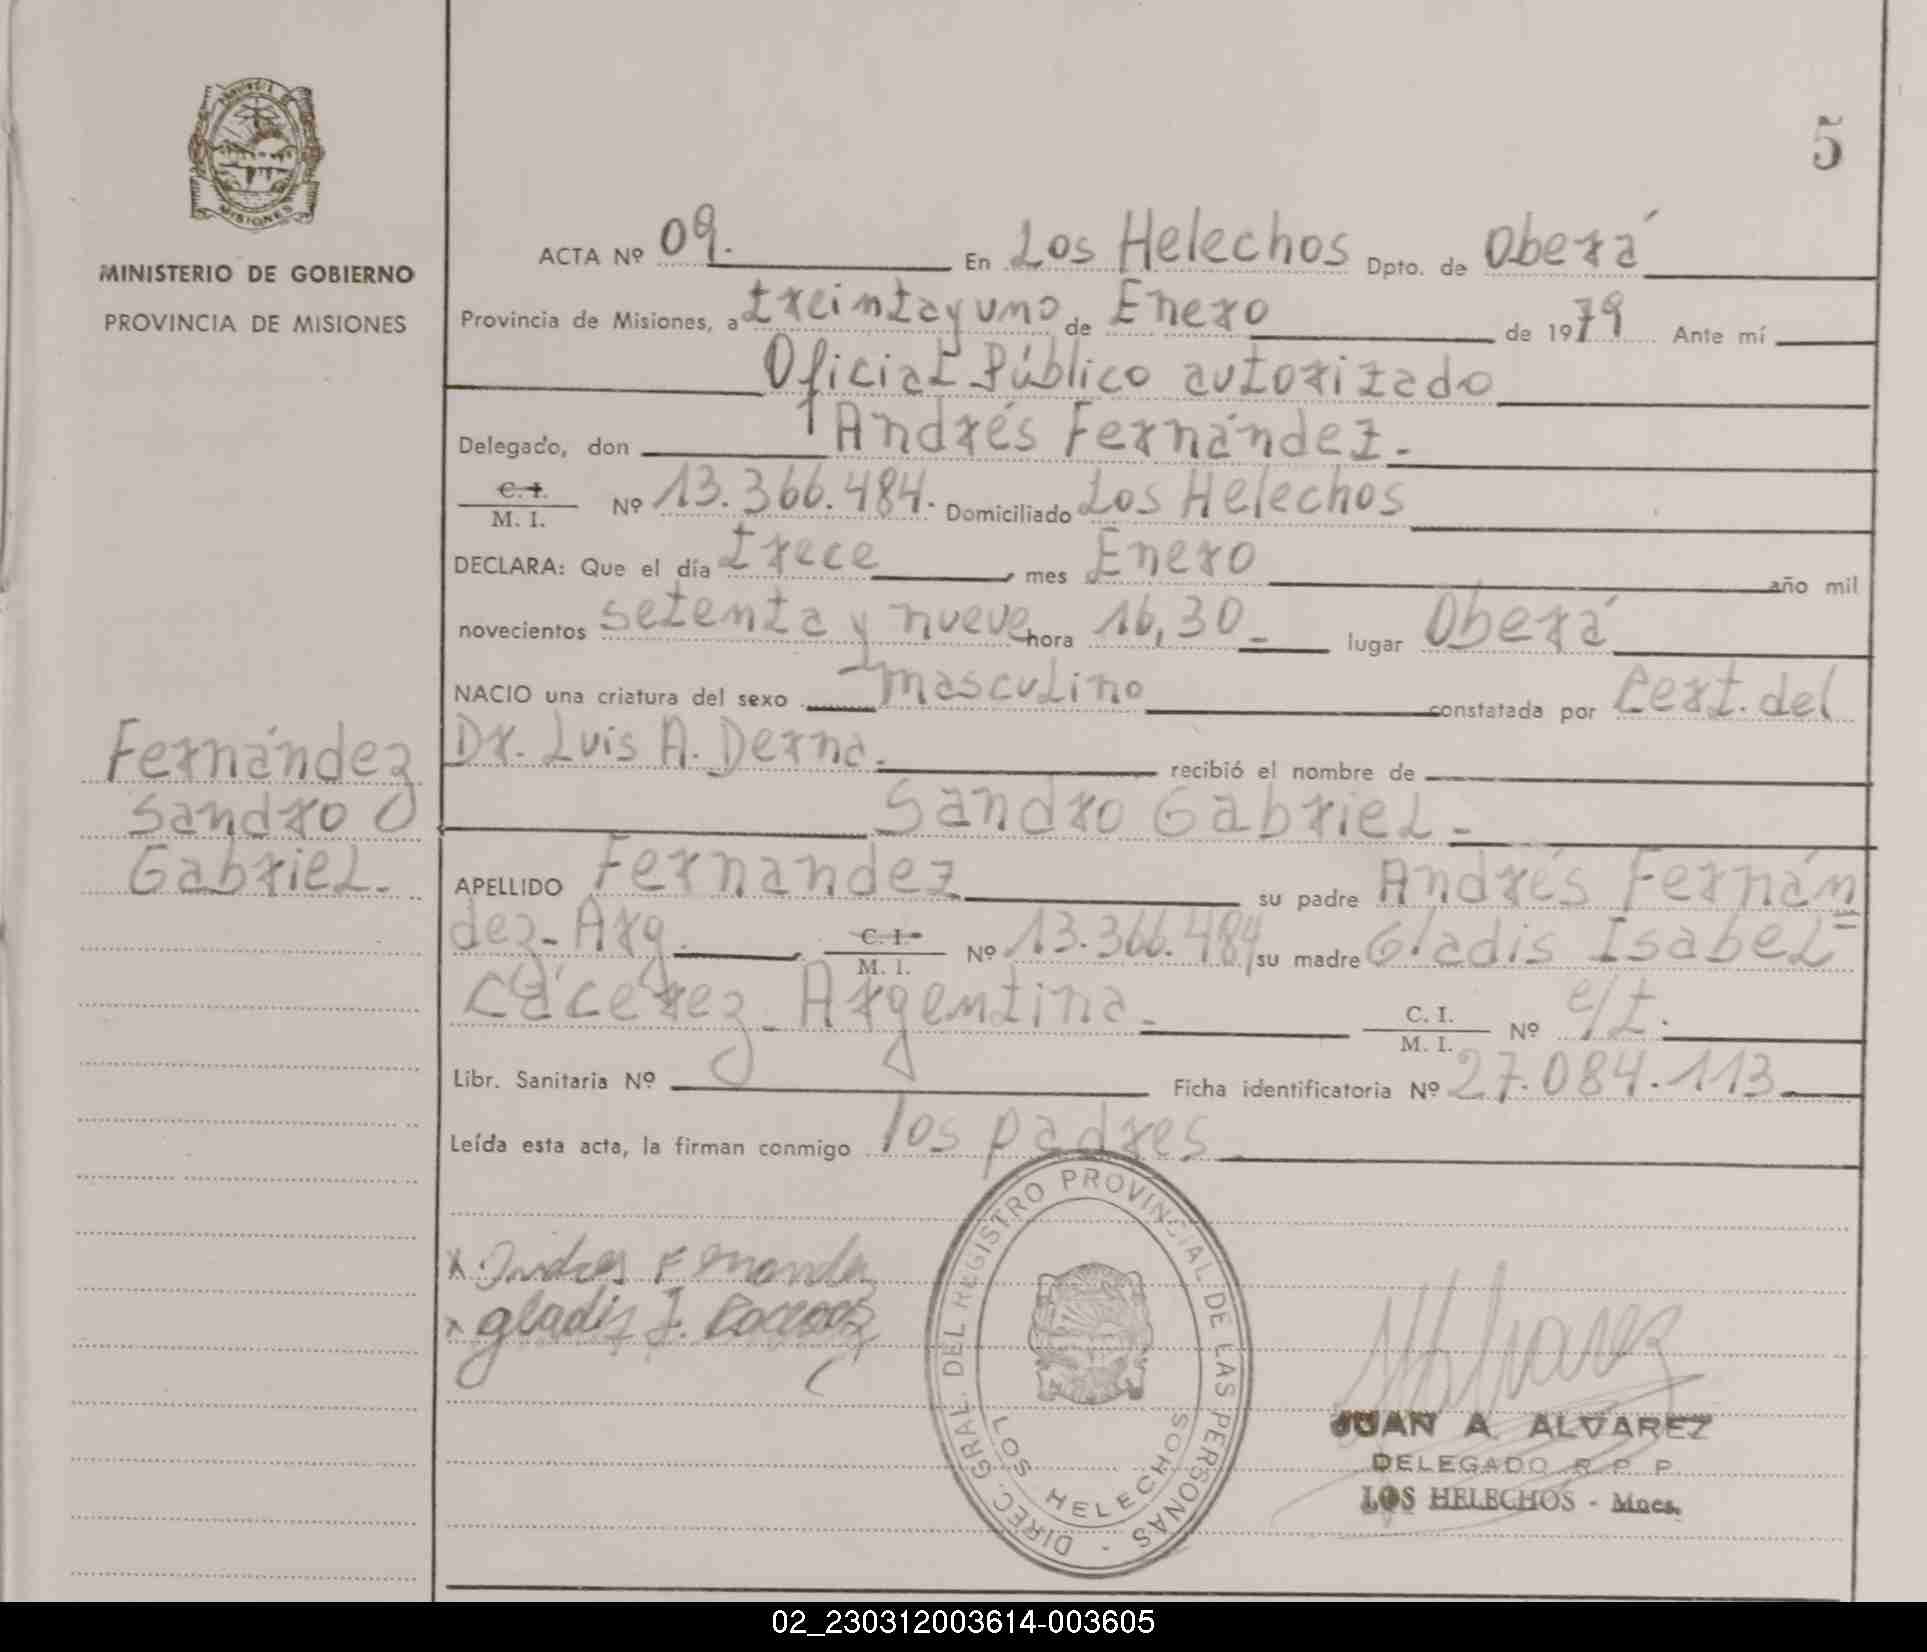 PROVINCIA DE
MISIONES
MINISTERIO DE GOBIERNO
PROVINCIA DE MISIONES
Fernández
Sandro
Gabriel.
5
ACTA Nº 09. En Los Helechos Dpto. de Oberá
Provincia de Misiones, a treinta y uno de Enero de 1979 Ante mí
Oficial Público autorizado
Delegado, don Andrés Fernández.
C. I.
M. I. Nº 13.366.484. Domiciliado Los Helechos
DECLARA: Que el día trece, mes Enero año mil
novecientos setenta y nueve hora 16,30 lugar Oberá
NACIO una criatura del sexo masculino constatada por Cert. del
Dr. Luis A. Derna. recibió el nombre de
Sandro Gabriel.
APELLIDO Fernandez su padre Andrés Fernán=
dez- Arg. C. I. M. I. Nº 13.366.484 su madre Gladis Isabel
Cácerez- Argentina. C. I. M. I. Nº e/t.
Libr. Sanitaria Nº Ficha identificatoria Nº 27.084.113.
Leída esta acta, la firman conmigo los padres.
x Andres Fernandez
x gladis I. Caceres
DIREC. GRAL. DEL REGISTRO PROVINCIAL DE LAS PERSONAS -
LOS HELECHOS
JAlvarez
JUAN A. ALVAREZ
DELEGADO R. P. P.
LOS HELECHOS - Mnes.
02_230312003614-003605